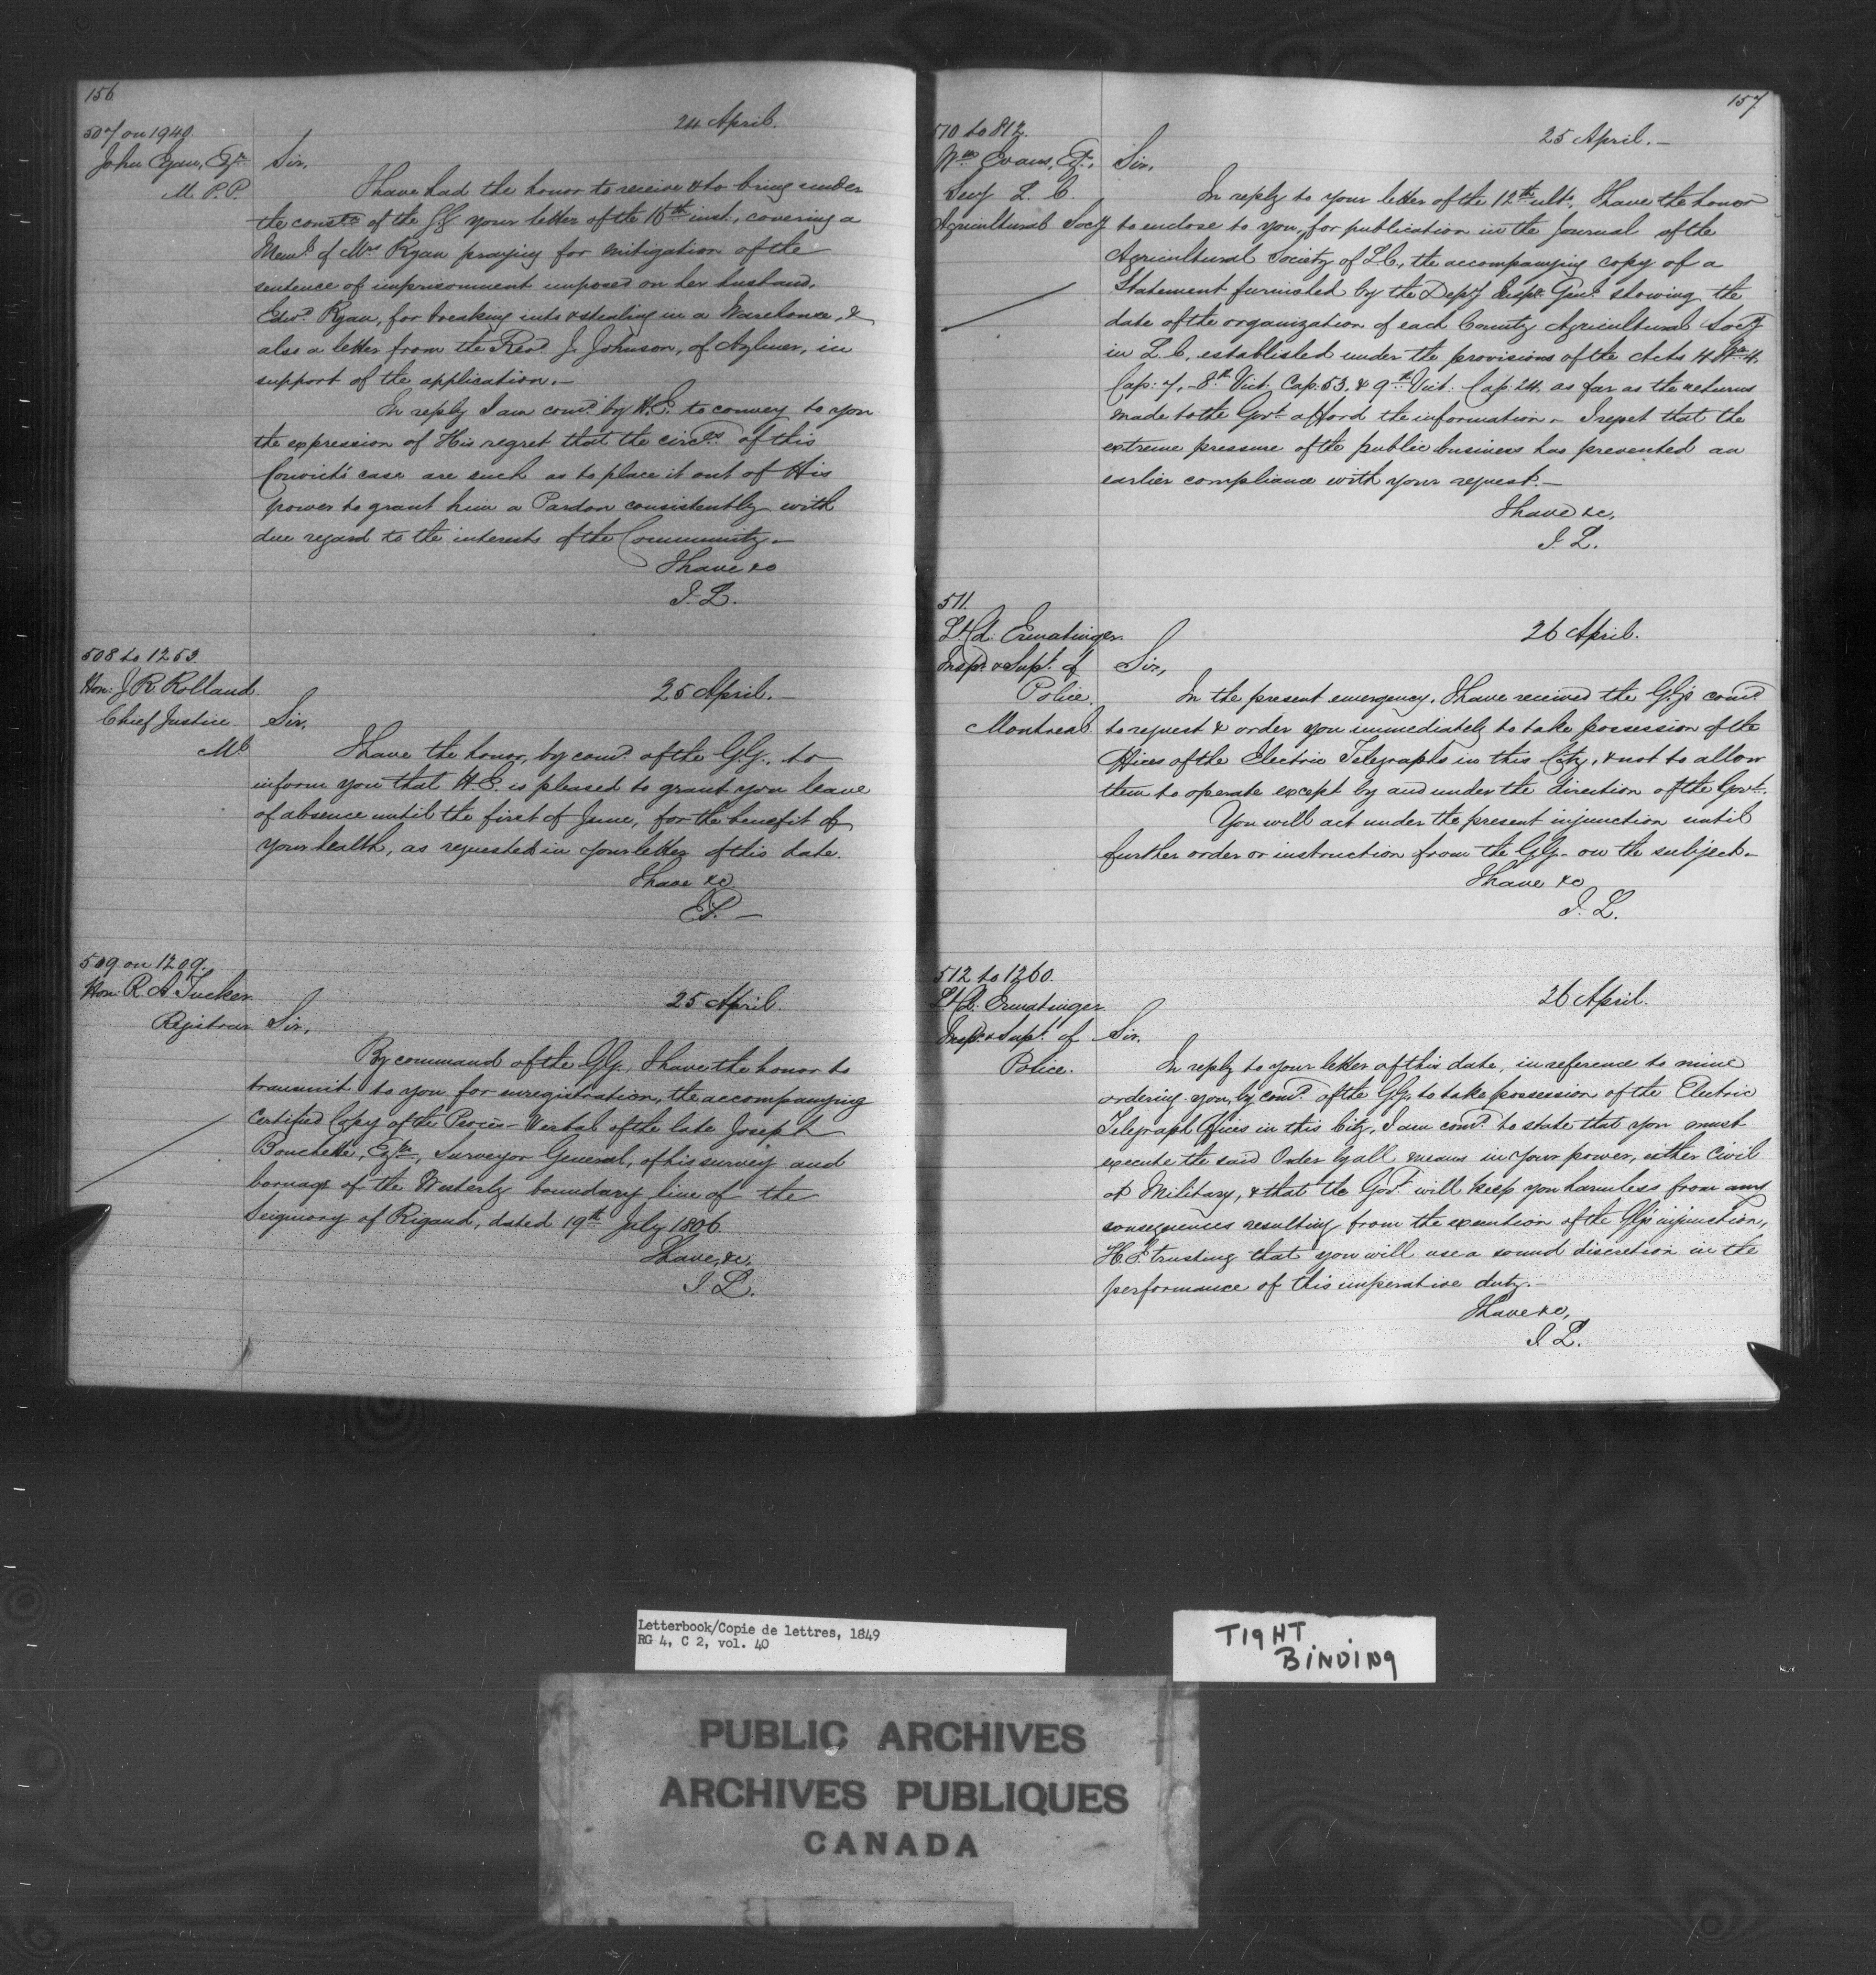 156
507 on 1940.
24 April.
John Egan, Esqr.
M.P.P.
Sir,
I have had the honor to receive & to bring under
the consn. of the GG your letter of the 16th inst., covering a
Meml. of Mrs Ryan praying for mitigation of the
sentence of imprisonment imposed on her husband,
Edwd. Ryan, for breaking into & stealing in a Warehouse, &
also a letter from the Revd. J. Johnson, of Aylmer, in
support of the application.—
In reply I am comd. by H.E. to convey to you
the expression of His regret that the circes. of this
Convict's case are such as to place it out of His
power to grant him a Pardon consistently with
due regard to the interests of the Community.—
I have &c
J. L.
508 to 1253.
Hon: J R Rolland
Chief Justice
Ml
25 April.—
Sir,
I have the honor, by comd. of the G.G., to
inform you that H.E. is pleased to grant you leave
of absence until the first of June, for the benefit of
your health, as requested in your letter of this date.
I have &c
—
509 on 1209.
Hon: R A Tucker
Registrar
25 April.
Sir,
By command of the GG, I have the honor to
transmit to you for enregistration, the accompanying
Certified Copy of the Procès-Verbal of the late Joseph
Bouchette, Esqre, Surveyor General, of his survey and
bornage of the Westerly boundary line of the
Seigniory of Rigaud, dated 19th July 1806.
I have, &c,
J. L.
157
510 to 812.
25 April.—
Wm Evans, Esr.,
Secy L. C.
Agricultural Socy
Sir,
In reply to your letter of the 12th ulto, I have the honor
to enclose to you, for publication in the Journal of the
Agricultural Society of L.C., the accompanying copy of a
Statement furnished by the Depy Inspr. Genl. showing the
date of the organization of each County Agricultural Socy
in L.C. established under the provisions of the Acts 4 Wm 4.
Cap: 7, - 8th Vict. Cap: 53. & 9th Vict. Cap: 24, as far as the returns
made to the Govt. afford the information - I regret that the
extreme pressure of the public business has prevented an
earlier compliance with your request.—
I have &c,
J. L.
511.
Lt. Col. Ermatinger.
Inspr. & Supt. of
Police.
Montreal
26 April.
Sir,
In the present emergency, I have received the GG's comd.
to request & order you immediately to take possession of the
Offices of the Electric Telegraphs in this City, & not to allow
them to operate except by and under the direction of the Govt.
You will act under the present injunction until
further order or instruction from the GG. on the subject.—
I have &c
J. L.
512 to 1260.
Lt. Col. Ermatinger.
Inspr. & Supt. of
Police.
26 April.
Sir,
In reply to your letter of this date, in reference to mine
ordering you, by comd. of the GG, to take possession of the Electric
Telegraph Offices in this City, I am comd. to state that you must
execute the said Order by all means in your power, either Civil
or Military, & that the Govt. will keep you harmless from any
consequences resulting from the execution of the GG's injunction,
H.E. trusting that you will use a sound discretion in the
performance of this imperative duty.—
I have &c,
J. L.
Letterbook/Copie de lettres, 1849
RG 4, C 2, vol. 40
TIGHT
BINDING
PUBLIC ARCHIVES
ARCHIVES PUBLIQUES
CANADA